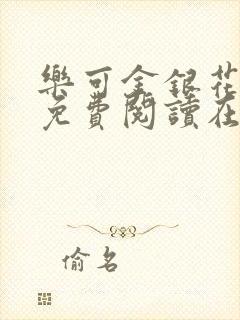 樂可金銀花
免費閱讀在
偷名